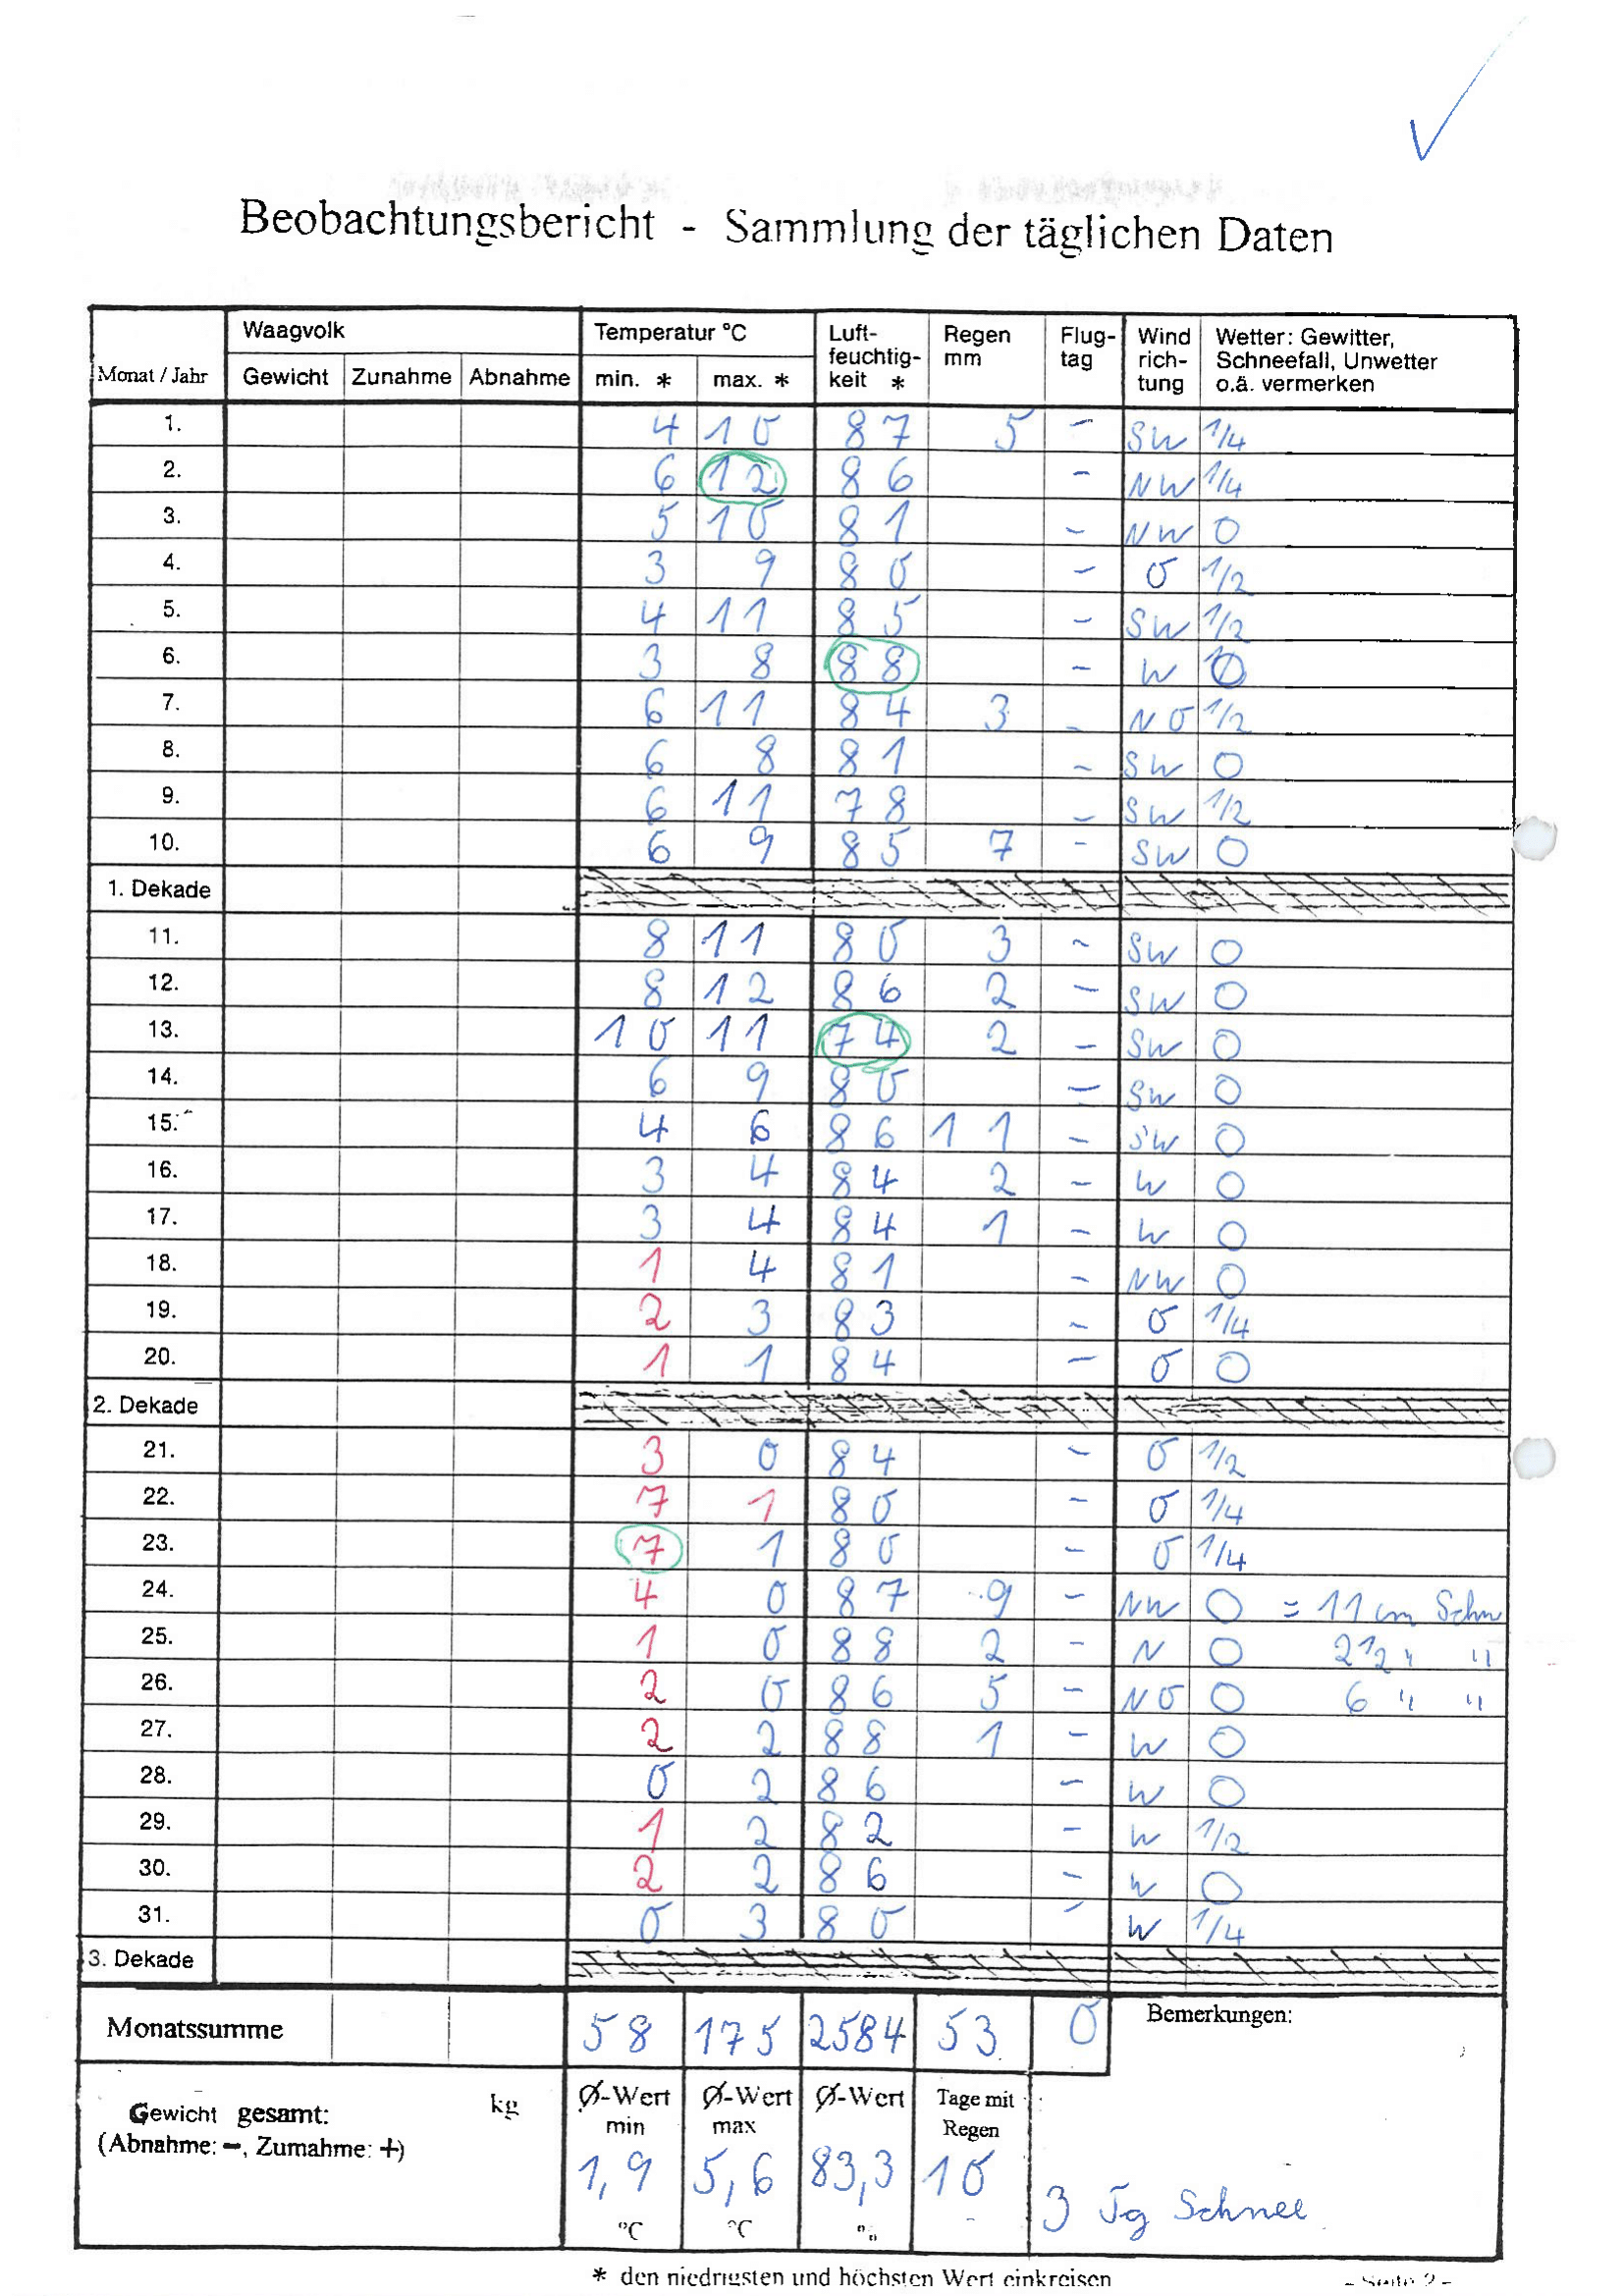 Beobachtungsbericht - Sammlung der täglichen Daten
Monat / Jahr Waagvolk Temperatur °C Luft-feuchtig-keit * Regen mm Flug-tag Wind rich-tung Wetter: Gewitter, Schneefall, Unwetter o.ä. vermerken
Gewicht Zunahme Abnahme min. * max. *
1. 4 10 87 5 - SW 1/4
2. 6 12 86 - NW 1/4
3. 5 10 81 - NW 0
4. 3 9 80 - O 1/2
5. 4 11 85 - SW 1/2
6. 3 8 88 - W 0
7. 6 11 84 3 - NO 1/2
8. 6 8 81 - SW 0
9. 6 11 78 - SW 1/2
10. 6 9 85 7 - SW 0
1. Dekade
11. 8 11 80 3 - SW 0
12. 8 12 86 2 - SW 0
13. 10 11 74 2 - SW 0
14. 6 9 80 - SW 0
15. 4 6 86 11 - SW 0
16. 3 4 84 2 - W 0
17. 3 4 84 1 - W 0
18. 1 4 81 - NW 0
19. 2 3 83 - O 1/4
20. 1 1 84 - O 0
2. Dekade
21. 3 0 84 - O 1/2
22. 7 1 80 - O 1/4
23. 7 1 80 - O 1/4
24. 4 0 87 9 - NW 0 = 11 cm Schn
25. 1 0 88 2 - N 0 2 1/2 " "
26. 2 0 86 5 - NO 0 6 " "
27. 2 2 88 1 - W 0
28. 0 2 86 - W 0
29. 1 2 82 - W 1/2
30. 2 2 86 - W 0
31. 0 3 80 - W 1/4
3. Dekade
Monatssumme 58 175 2584 53 0 Bemerkungen:
Gewicht gesamt: kg Ø-Wert min Ø-Wert max Ø-Wert Tage mit Regen
(Abnahme: -, Zumahme: +)
1,9 5,6 83,3 10
°C °C %
3 Tg Schnee
* den niedrigsten und höchsten Wert einkreisen - Seite 2 -